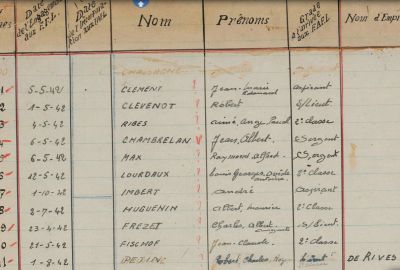 Date de l'Engagement aux F.F.L. Date Nom Prénoms Grade à l'arrivée aux F.A.F.L. Nom d'Emp
5-5-42 CLEMENT Jean-Marie Edouard aspirant
1-5-42 CLEVENOT Robert S/Lieut.
4-5-42 RIBES Aimé, Ange, Pascal 2° classe
6-5-42 CHAMBRELAN Jean, Albert. Sergent
6-5-42 MAX Raymond Albert. Sergent
12-5-42 LOURDAUX Louis Georges, Ovide 2° classe
1-10-42 IMBERT André aspirant
2-7-42 HUGUENIN Albert, Maurice 2° classe
23-4-42 FREZET Charles, Albert S/Lieut
21-5-42 FISCHOF Jean-Claude. 2° classe
1-8-42 Robert, Charles, DE RIVES